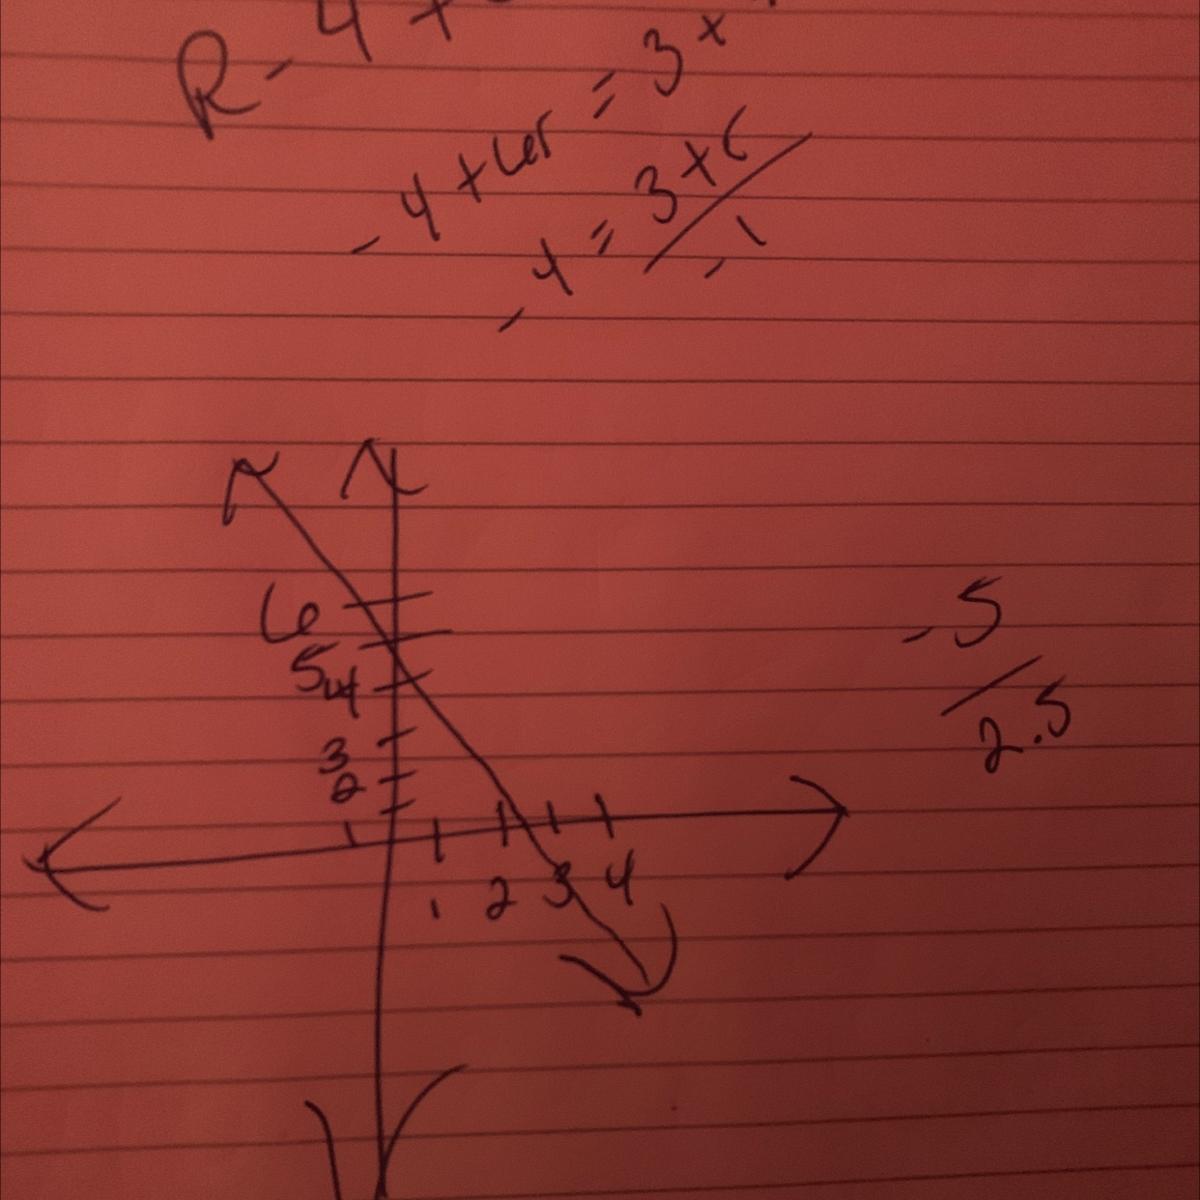 R - 4 +
- 4 + 6r = 3 +
- 4 = 3 + 6 / - 1
6
5
4
3
2
1
1 2 3 4
- 5 / 2.5